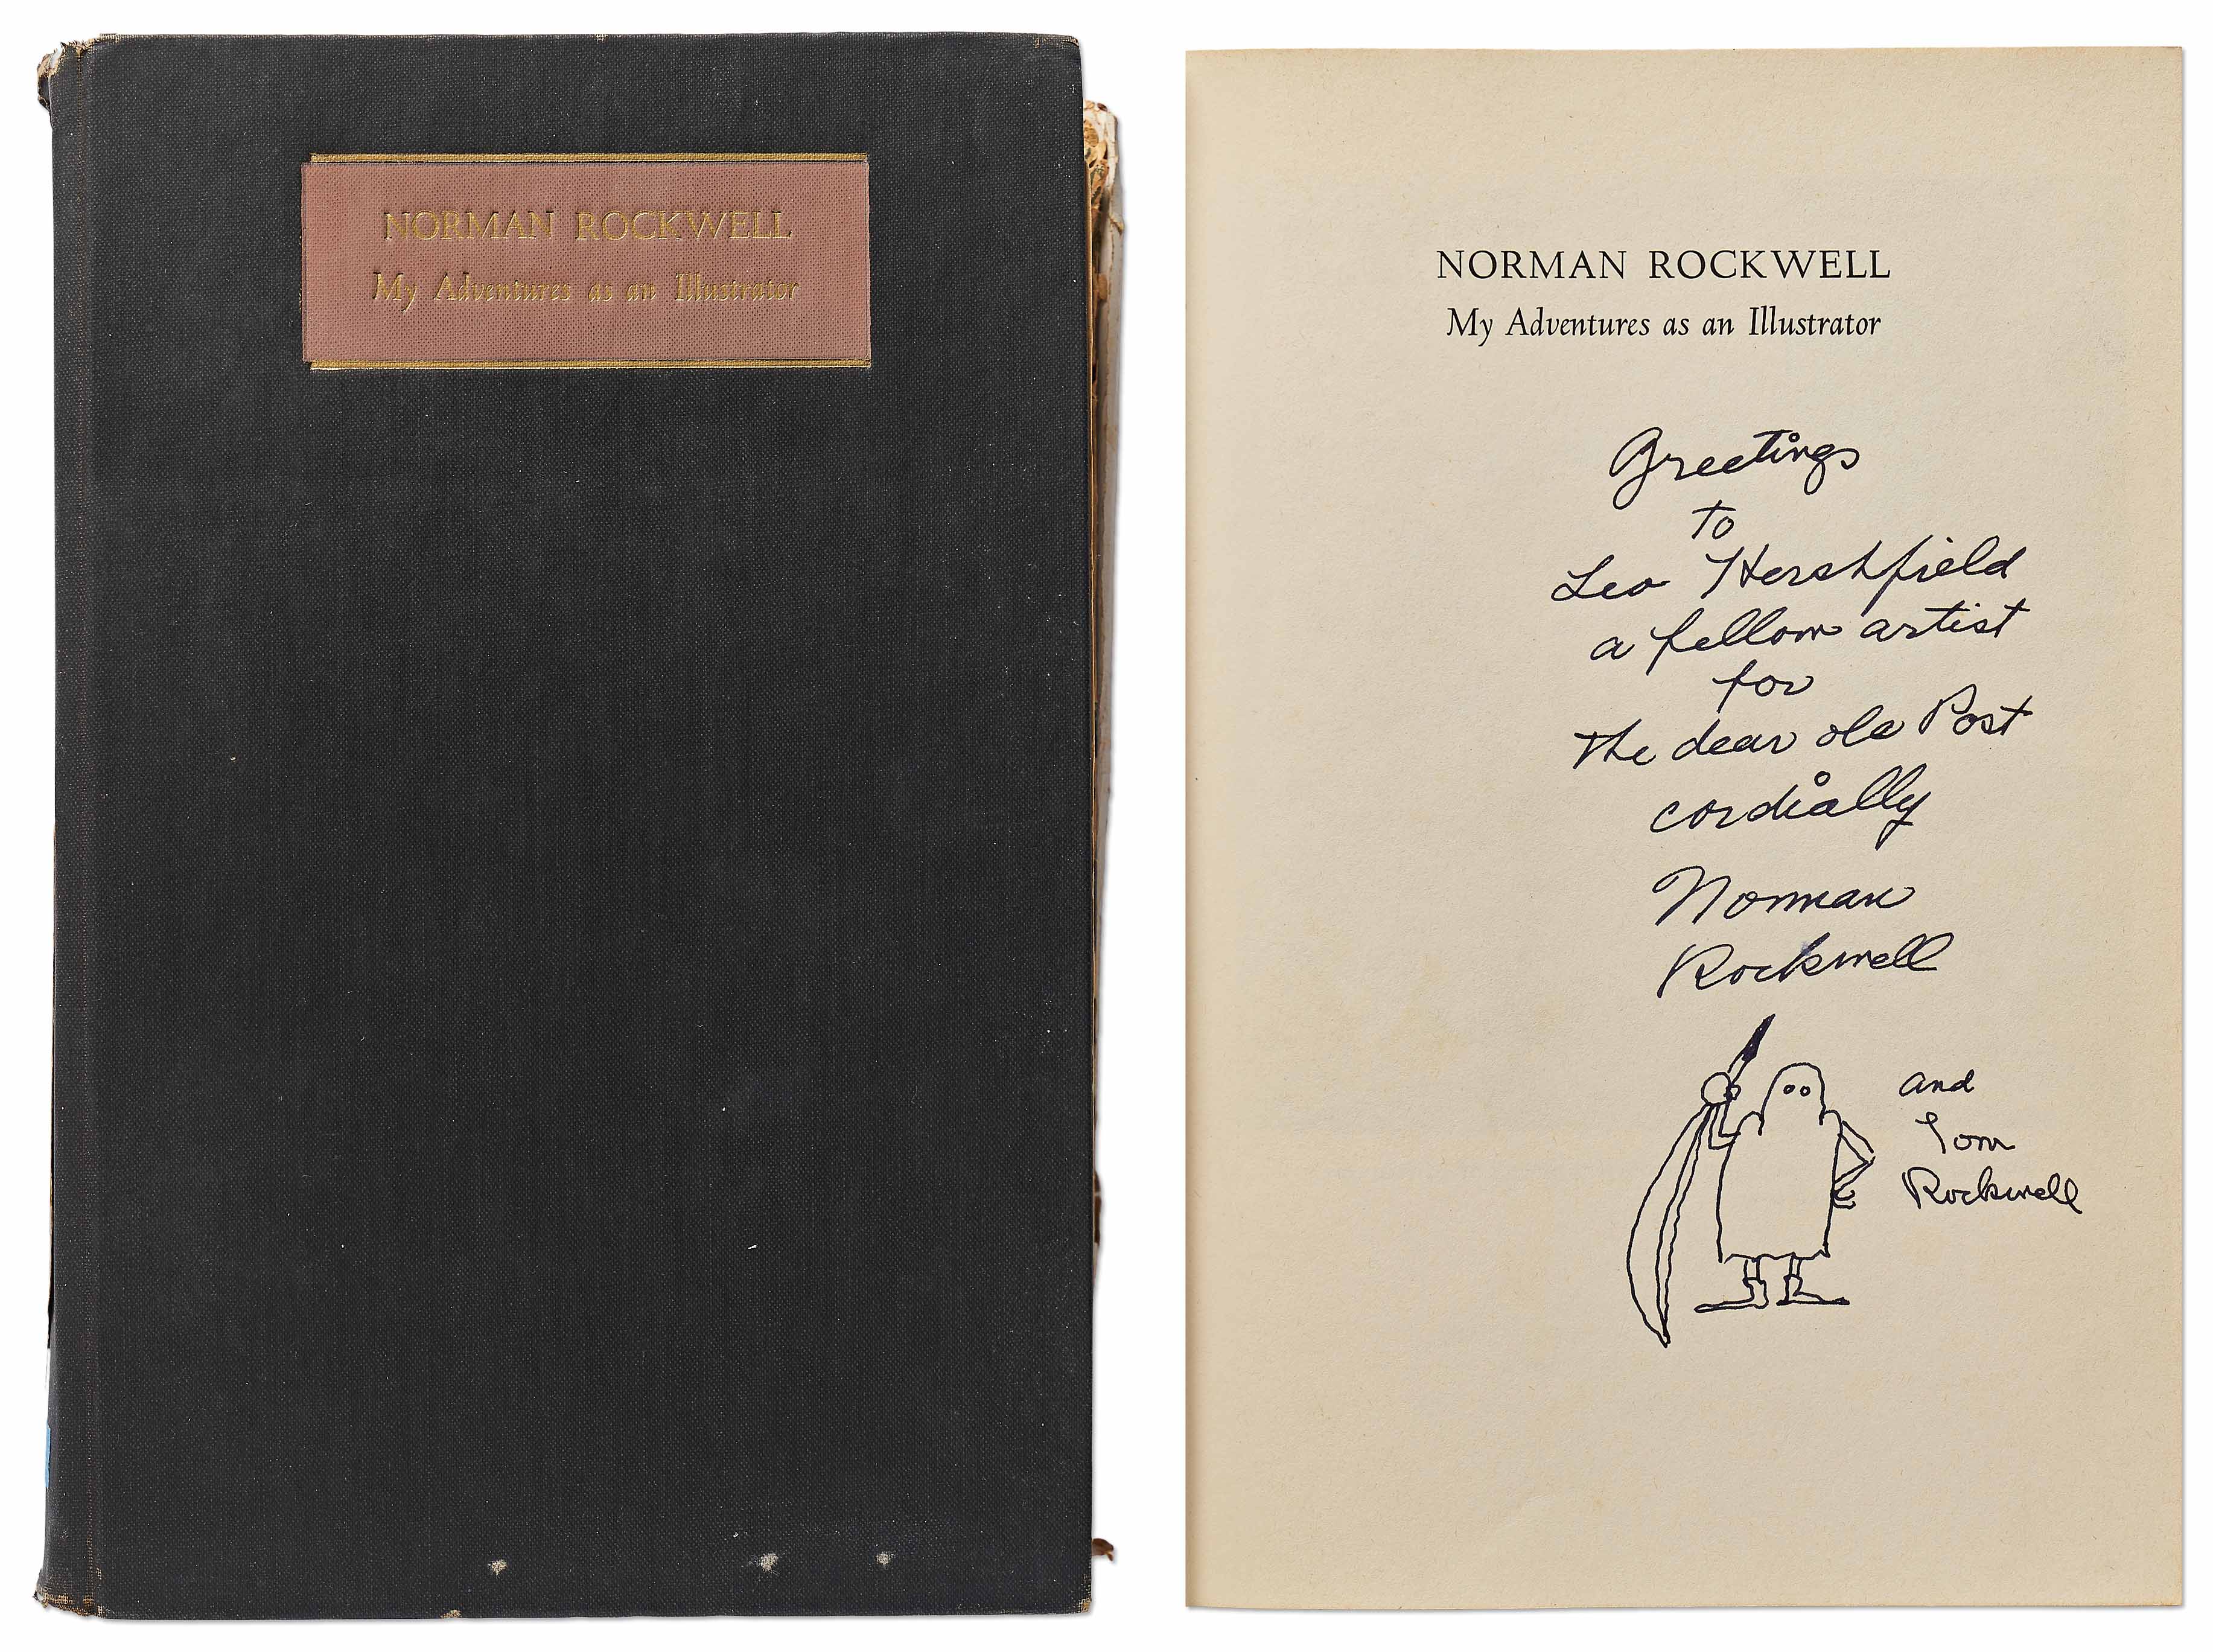 NORMAN ROCKWELL
My Adventures as an Illustrator
NORMAN ROCKWELL
My Adventures as an Illustrator
Greetings
to
Leo Hershfield
a fellow artist
for
The dear ole Post
cordially
Norman
Rockwell
and
Tom
Rockwell